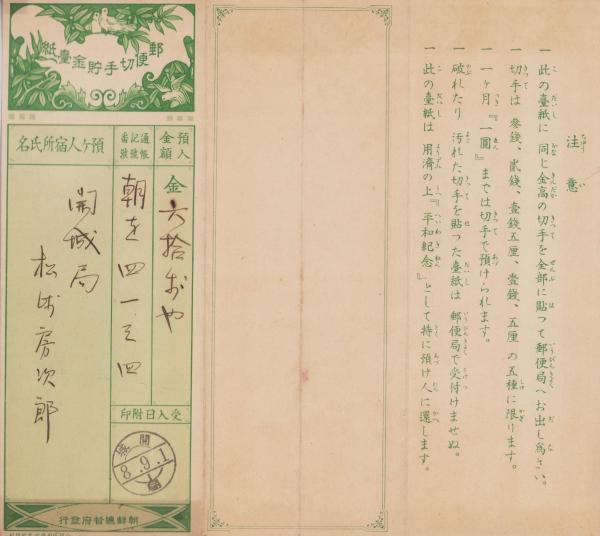 注意
一 此の臺紙に 同じ金高の切手を全部に貼つて郵便局へお出し爲さい。
一 切手は 參錢、貳錢、壹錢五厘、壹錢、五厘 の五種に限ります。
一 一ヶ月『一圓』までは切手で預けられます。
一 破れたり 汚れた切手を貼つた臺紙は 郵便局で受付けませぬ。
一 此の臺紙は 用濟の上『平和紀念』として特に預け人に還します。
郵便切手貯金臺紙
預入金額
金
通帳記號番號
四一三四
預ケ人宿所氏名
開城局
松
房次郎
受入日附印
開城
8.9.1
朝鮮總督府發行